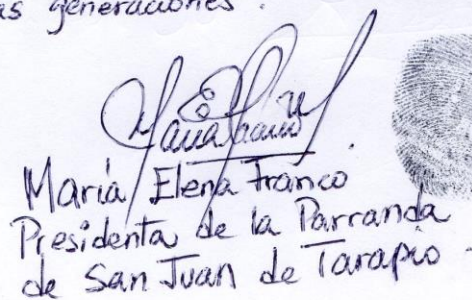 as generaciones.
María Elena Franco
Presidenta de la Parranda
de San Juan de Tarapio -